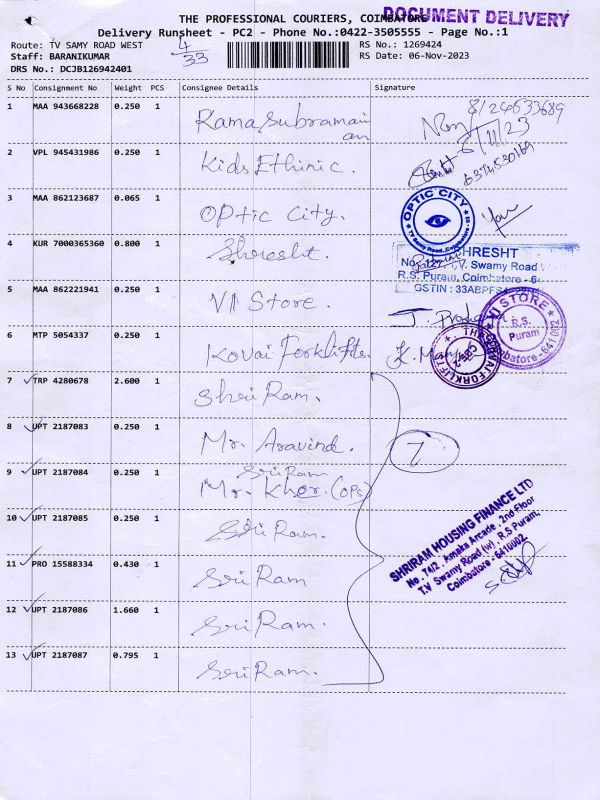 THE PROFESSIONAL COURIERS, COIMBATORE
DOCUMENT DELIVERY
Delivery Runsheet - PC2 - Phone No.:0422-3505555 - Page No.:1
Route: TV SAMY ROAD WEST 4/33 RS No.: 1269424
Staff: BARANIKUMAR RS Date: 06-Nov-2023
DRS No.: DCJB126942401
S No Consignment No Weight PCS Consignee Details Signature
1 MAA 943668228 0.250 1 Ramasubramanian
6/11/23
2 VPL 945431986 0.250 1 Kids Ethinic.
3 MAA 862123687 0.065 1 Optic City.
OPTIC CITY
T.V Samy Road, Coimbatore
4 KUR 7000365360 0.800 1 Shresht.
SHRESHT
T.V. Swamy Road
R.S. Puram, Coimbatore - 6
GSTIN : 33ABPFS
5 MAA 862221941 0.250 1 VI Store.
VI STORE
R.S. Puram
Coimbatore-641 002
6 MTP 5054337 0.250 1 Kovai Forklifts.
THE KOVAI FORKLIFT
CBE-2
7 TRP 4280678 2.600 1 Shri Ram.
8 UPT 2187083 0.250 1 Mr. Aravind.
7
9 UPT 2187084 0.250 1 Sri Ram
Mr. Kher. (OPs)
10 UPT 2187085 0.250 1 Sri Ram.
SHRIRAM HOUSING FINANCE LTD
No. 74/2, Amaka Arcade, 2nd Floor
T.V Swamy Road (w), R.S Puram,
Coimbatore - 6410002.
11 PRO 15588334 0.430 1 Sri Ram
12 UPT 2187086 1.660 1 Sri Ram.
13 UPT 2187087 0.795 1 Sri Ram.